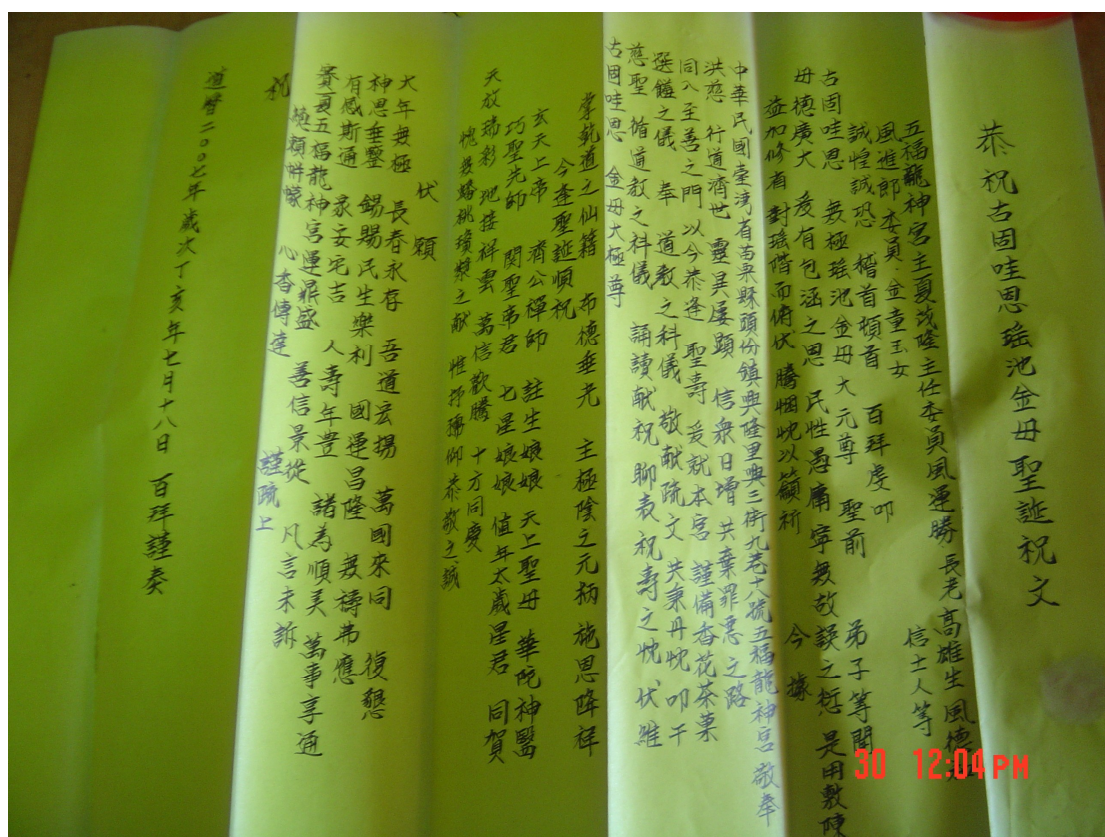 恭祝古固哇思瑤池金母聖誕祝文
五福龍神宮主夏茂隆主任委員風運勝 長老高雄生風德
風進郎委員.金童玉女 信士人等
誠惶誠恐 稽首頓首 百拜虔叩
古固哇思 無極瑤池金母大元尊 聖前 弟子等聞
母德廣大 爰有包涵之恩 民性愚庸寧無故誤之愆 是用敷陳
益加修省 對瑤階而俯伏 騰悃忱以籲祈 今據
中華民國臺湾省苗栗縣頭份鎮興隆里興三街九巷十八號五福龍神宮 敬奉
洪慈 行道濟世 靈異屡顕 信衆日增 共棄罪惡之路
同入至善之門 以今恭逢 聖壽 爰就本宮 謹備香花茶菓
選饈之儀 奉 道教之科儀 敬献疏文 共秉丹忱 叩干
慈聖 脩道教之科儀 誦讀献祝 聊表祝壽之忱 伏維
古固哇思 金母大極尊
掌乾道之仙籍 布德垂光 主極陰之元柄 施恩降祥
今逢聖誕順祝
玄天上帝 濟公禪師 註生娘娘 天上聖母 華陀神醫
巧聖先師 関聖帝君 七星娘娘 值年太歲星君 同賀
天放瑞彩 地接祥雲 萬信歡騰 十方同慶
愧無蟠桃瓊漿之献 惟抒彌仰恭敬之誠
伏 願
大年無極 長春永存 吾道宏揚 萬國來同 復懇
神恩垂鑒 錫賜民生樂利 國運昌隆 無禱弗應
有感斯通 家安宅吉 人壽年豊 諸為順美 萬事享通
賽夏五福龍神宮運鼎盛 善信景從 凡言未訴
德頼帡幪 心香傳達 謹疏上
祝
道曆二00七年歲次丁亥年七月十八日 百拜謹奏
30 12:04 PM